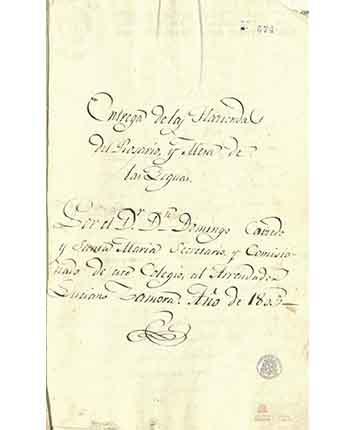 Entrega de las Haciendas
del Rosario, y Mesa de
las Yeguas.
Por el Dr. Dn. Domingo
y Santa Maria Secretario, y Comisio-
nado de este Colegio, al Arrendador
Luciano Zamora. Año de